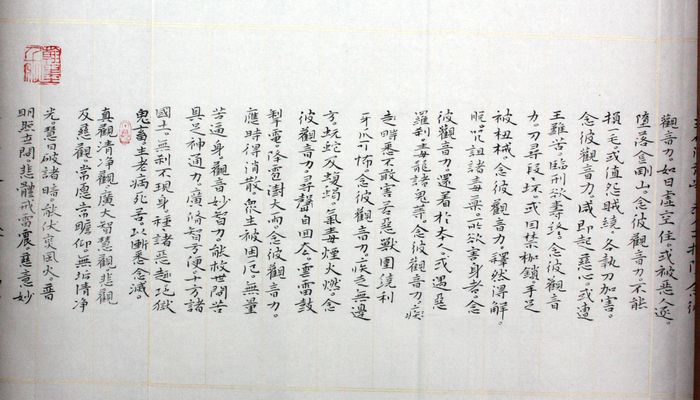 觀音力。如日虛空住。或被惡人逐。
墮落金剛山。念彼觀音力。不能
損一毛。或值怨賊繞。各執刀加害。
念彼觀音力。咸即起慈心。或遭
王難苦。臨刑欲壽終。念彼觀音
力。刀尋段坏。或囚禁枷鎖。手足
被杻械。念彼觀音力。釋然得解。
脫。咒詛諸毒藥。所欲害身者。念
彼觀音力。還着於本人。或遇惡
羅刹。毒龍諸鬼等。念彼觀音力。疾
走時悉不敢害。若惡獸圍繞利
牙爪可怖。念彼觀音力。疾走無邊
方。蚖蛇及蝮蝎。氣毒煙火燃。念
彼觀音力。尋聲自回去。雲雷鼓
掣電。降雹澍大雨。念彼觀音力。
應時得消散。眾生被困厄。無量
苦逼身。觀音妙智力。能救世間苦
具足神通力。廣修智方便。十方諸
國土。無刹不現身。種諸惡趣。地獄
鬼畜。生老病死苦。以漸悉念滅。
真觀清淨觀。廣大智慧觀。悲觀
及慈觀。常愿常瞻仰。無垢清淨
光。慧日破諸暗。能伏災風火。普
明照世間。悲體戒雷震。慈意妙